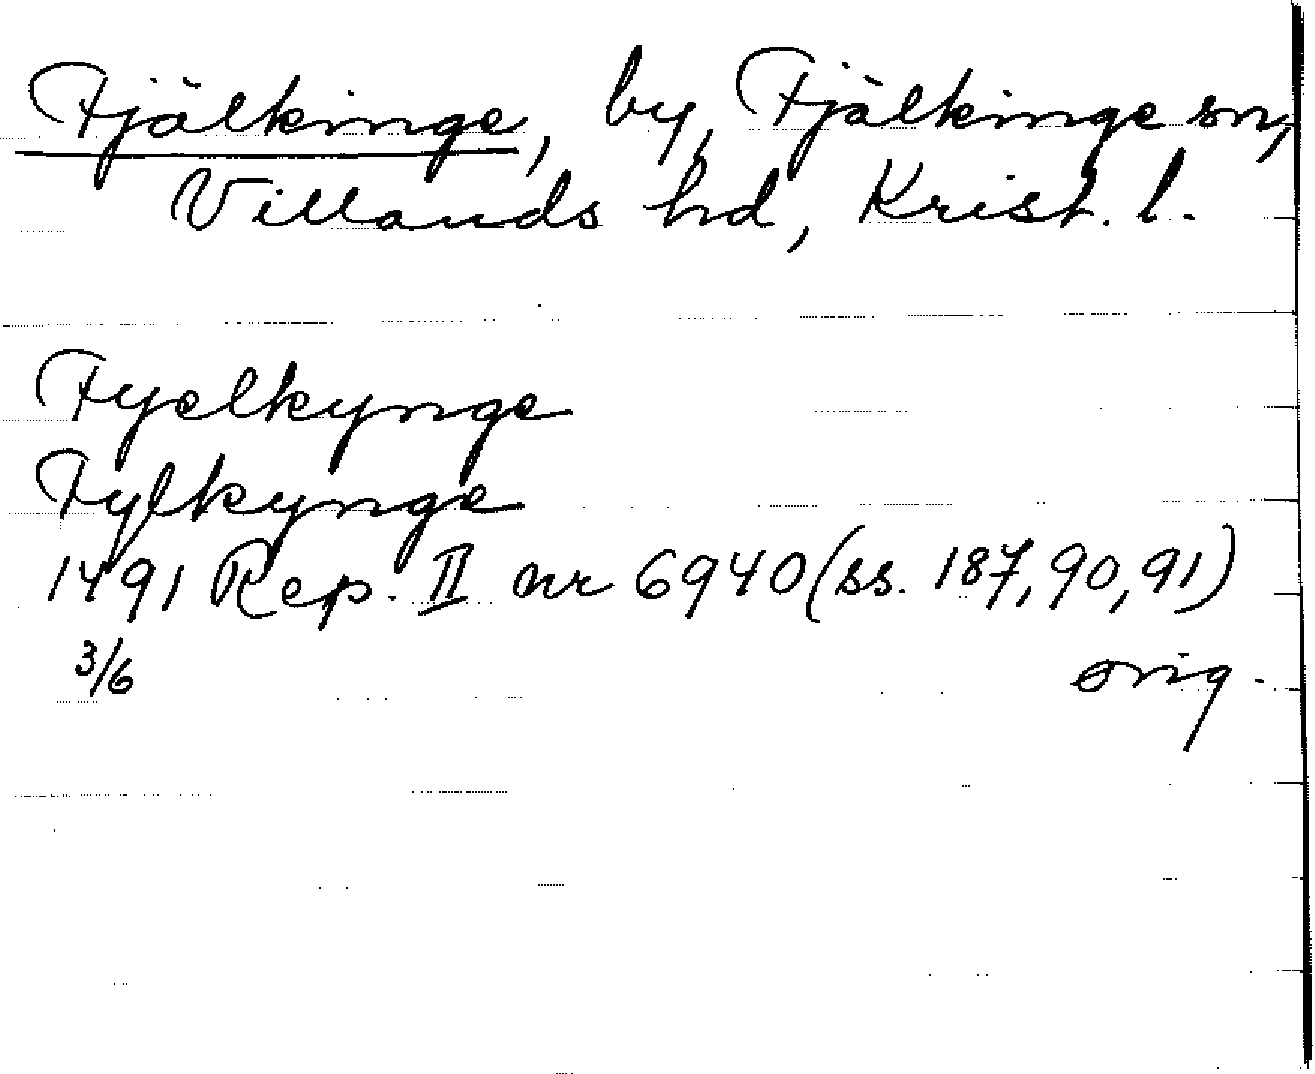 Fjälkinge, by, Fjälkinge sn,
Villands hd, Krist. l.
Fyelkynge
Fylkynge
1491 Rep. II nr 6940 (ss. 187, 90, 91)
3/6 orig.